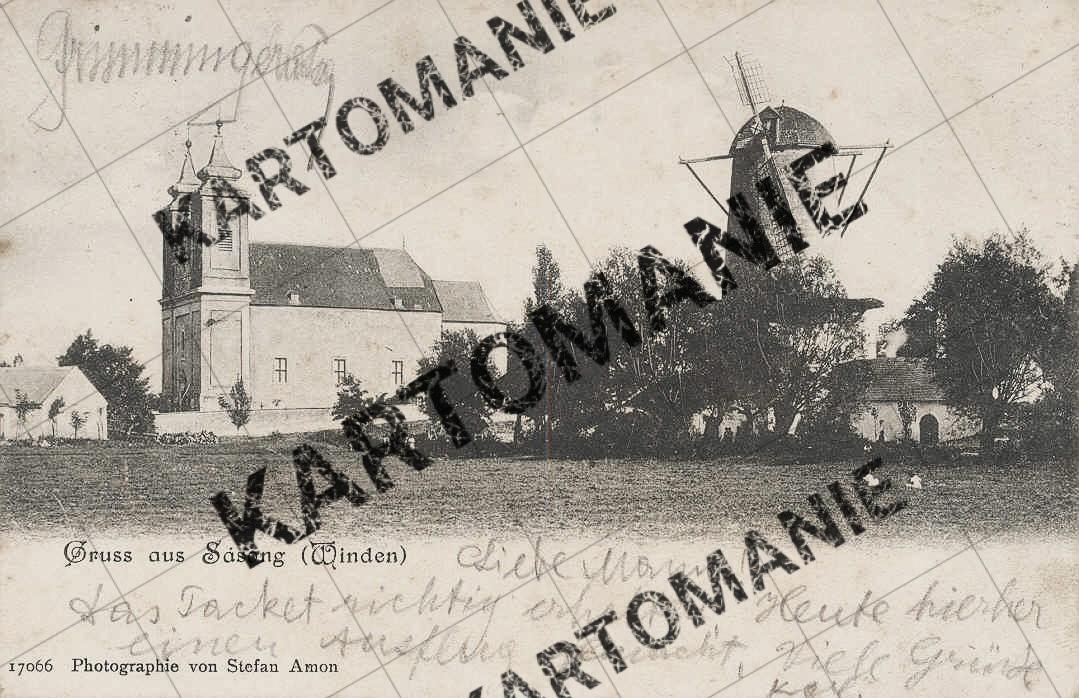 KARTOMANIE
KARTOMANIE
Gruss aus Sásony (Winden)
Liebe Mama
das Packet richtig erhalten Heute hierher
einen Ausflug gemacht, Viele Grüsse
17066 Photographie von Stefan Amon
KARTOMANIE